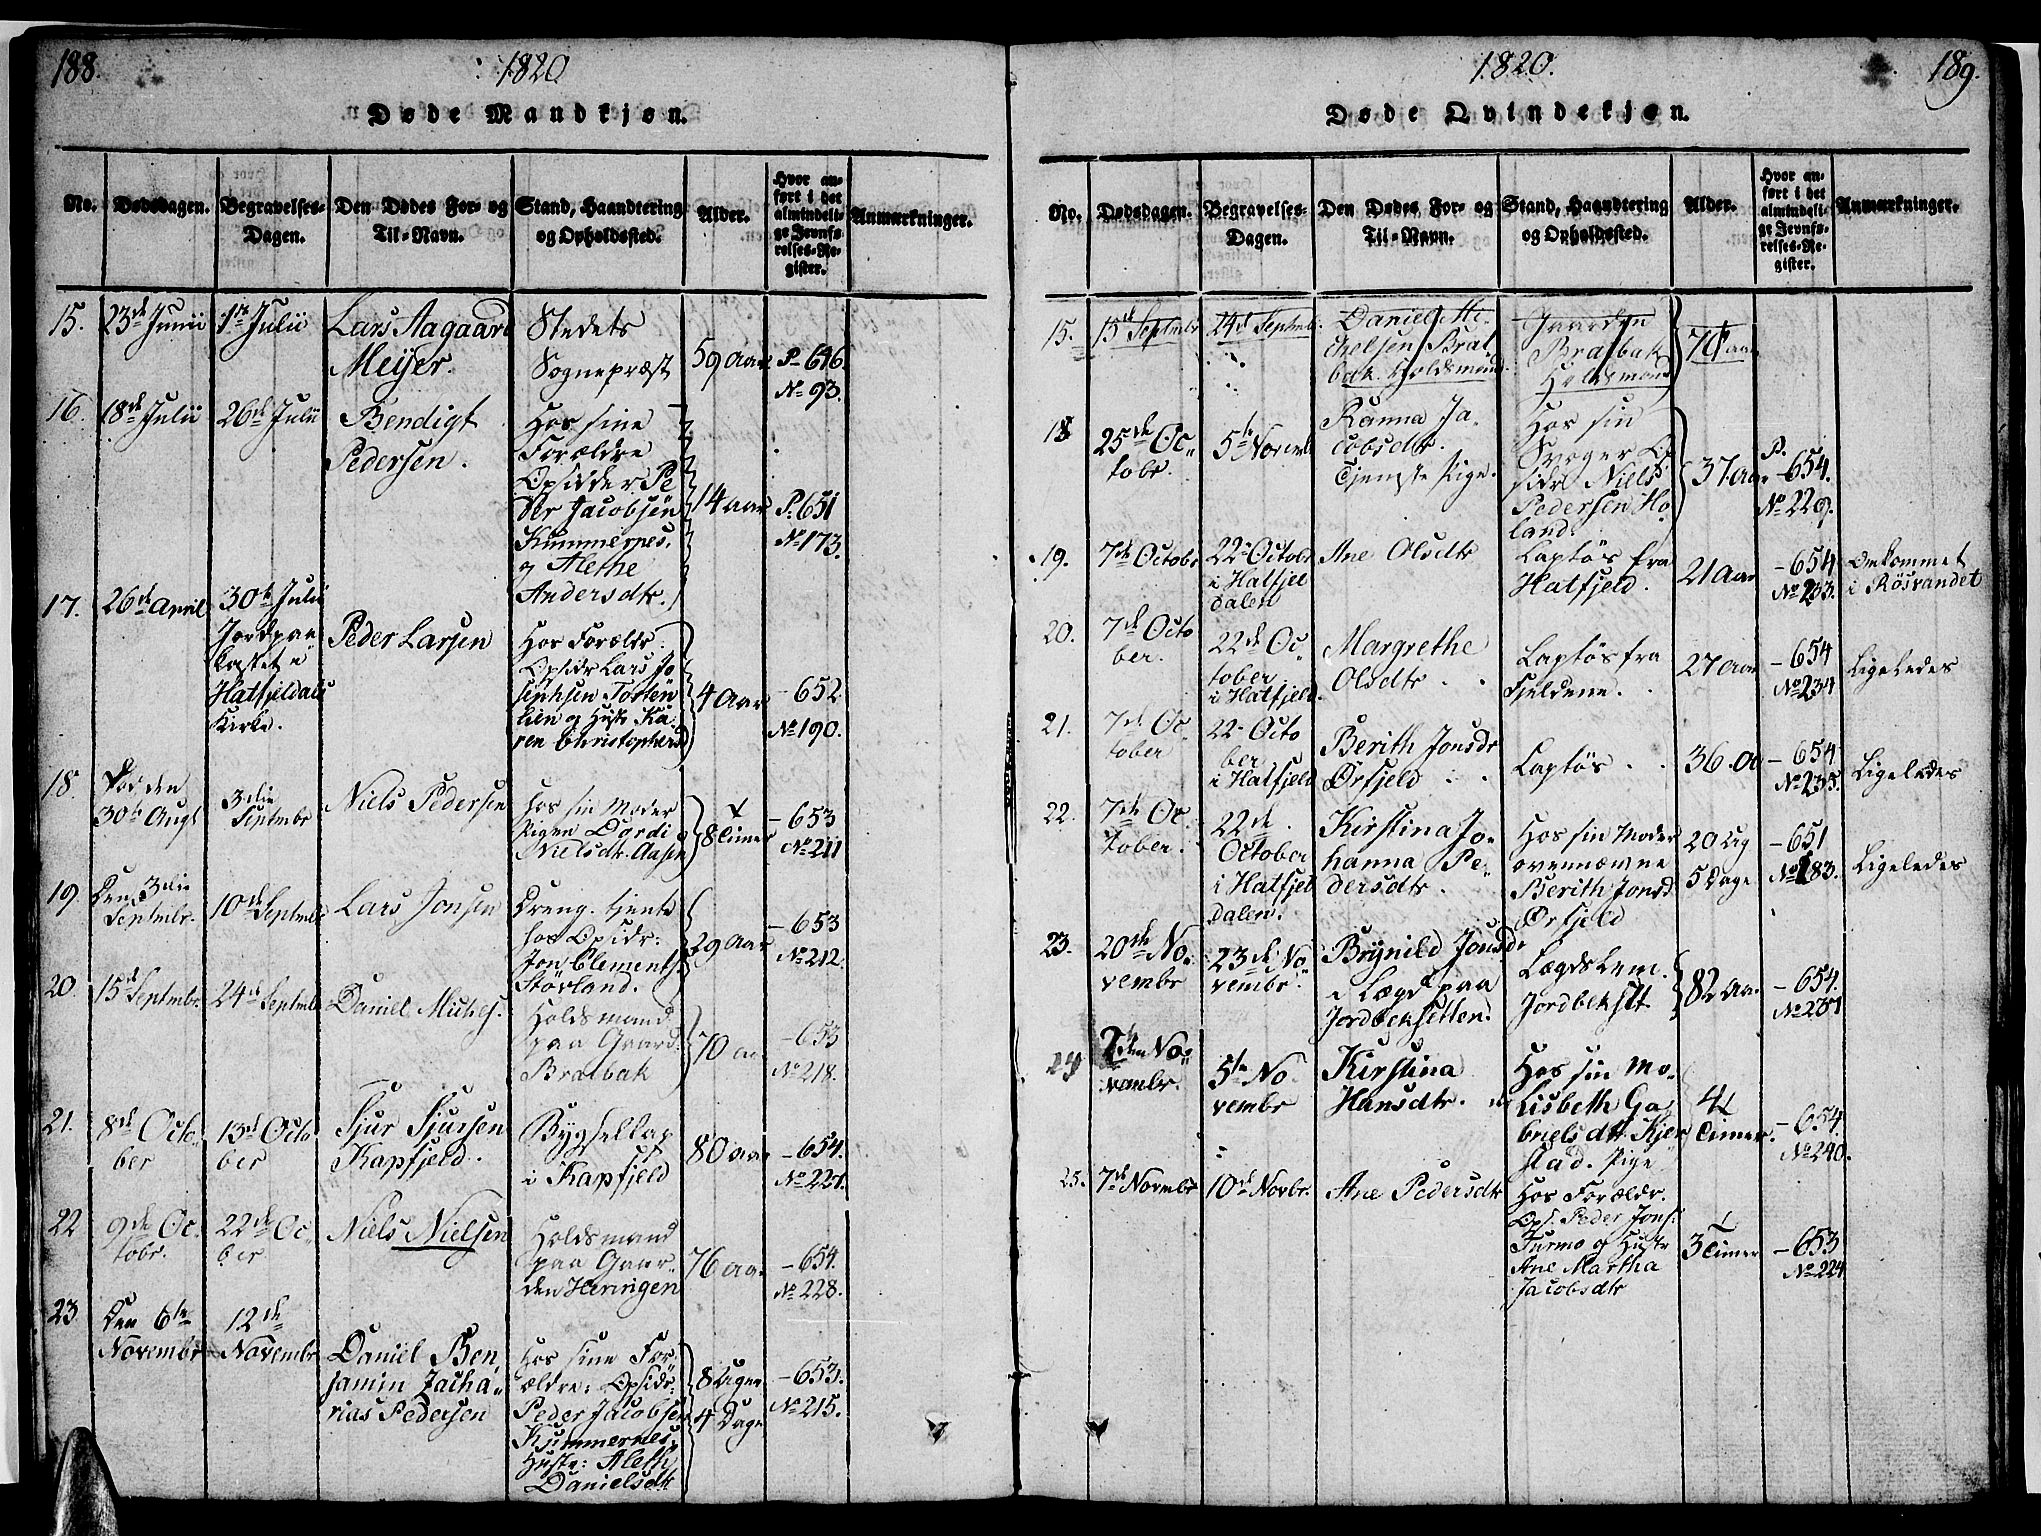 188.
1820
Døde Mandkjøn.
No.
Dødsdagen.
Begravelses-
Dagen.
Den Dødes For- og
Til-Navn.
Stand, Haandtering
og Opholdssted.
Alder.
Hvor an-
ført i det
almindeli-
ge Jevnfø-
relses-Re-
gister.
Anmærkninger.
15.
23de Junii
1te Julii
Lars Aagaard
Meiser.
Stedets
Sognepræst
59 Aar
P. 646.
No 93.
16.
18de Julii
26de Julii
Bendigt
Pedersen.
Hos sine
Forældre
Opsidder Pe
der Jacobsen
Kummernes,
og Alethe
Andersdtr.
14 aar
P. 651
No 173.
17.
26de April
30te Julii
Jordpaa-
kastet i
Hatfjeldals
Kirke.
Peder Larsen
Hos Forældr:
Opsidr Lars Jo
sephsen Torten
lien og Hustr Ka-
ren Christophersd
4 Aar
- 652
No 190.
18
Død den
30te Augt
3die
Septmbr
Niels Pedersen
Hos sin Moder
Pigen Dordi
Nielsdtr. Aasen
8 Timer
- 653
No 211
19
Den 3die
Septmbr.
10de Septmbr
Lars Jonsen
Dreng. tjente
hos Opsidr:
Jon Clements.
Stövland.
29 Aar
- 653
No 212.
20.
15de Septmbr.
24de Septmbr
Daniel Michels.
Holdsmand
paa Gaard.
Bratbak
70 aa
- 653
No 218.
21.
8de Octo-
ber
13de Octo
ber
Sjur Sjursen
Kapfjeld.
Bygsellap
i Kapfjeld
80 aar
- 654.
No 227.
22
9de Oc-
tobr.
22de Oc-
ber
Niels Nielsen
Holdsmand
paa Gaar-
den Herringen
76 aa.
- 654.
No 228.
23
Den 6te
Novembr
12de
Novembr
Daniel Ben-
jamin Zacha-
rias Pedersen
Hos sine For-
ældre: Opsidr.
Peder Jacobsen
Kjummernes,
Hustr: Aleth
Danielsdtr
8 Uger
4 Dage
- 653.
No 215.
1820.
189.
Døde Qvindekjøn.
No.
Dødsdagen.
Begravelses-
Dagen.
Den Dødes For- og
Til-Navn.
Stand, Haandtering
og Opholdssted.
Alder.
Hvor an-
ført i det
almindeli-
ge Jevnfø-
relses-Re-
gister.
Anmærkninger.
15.
15de Septmbr
24de Septmb.
Daniel Mi-
chelsen Brat-
bak. Holdsmand.
Gaarden
Bratbak
Holdsmand
70 aar
18
25de Oc-
tobr.
5te Novemb
Ranna Ja-
cobsdtr.
Tjeneste Pige.
Hos sin
Svoger Op
sidr Niels
Pedersen Ho-
land.
37 Aar
P.
- 654.
No 229.
19.
7de Octobr
22de Octobr
i Hatfjel
dalen
Ane Olsdtr
Laptös fra
Hatfjeld.
21 Aar
- 654
No 233.
Omkommet
i Rösvandet
20.
7de Octo
ber.
22de Oc-
tober
i Hatfjeld.
Margrethe
Olsdtr
Laptös fra
Fjeldene.
27 Aar
- 654
No 234
Ligeledes
21.
7de Oc-
tober
22de Octo
ber
i Hatfjeld
Berith Jonsdr
Örfjeld
Laptös
36. aa
- 654
No 235.
Ligeledes
22.
7de Oc-
tober.
22de
October
i Hatfjel
dalen.
Kirstina Jo-
hanna Pe-
dersdtr.
Hos sin Moder
ovennævne
Berith Jonsd
Örfjeld
20 Ug
5 Dage
- 651
No 183.
Ligeledes
23.
20de No-
vembr
23de No-
vembr.
Brynild Jonsdr
i Lægd paa
Jordbeksletten.
Lægdslem.
Jordbekslt
82 Aar
- 654.
No 237
24
2den No-
vembr.
5te No-
vembr
Kirstina
Hansdtr.
Hos sin Mo-
Lisbeth Ga-
brielsdtr. Kjer
stad. Pige
4
Timer.
- 654.
No 240.
25.
7de Novmbr
10de Novbr.
Ane Pedersdtr
Hos Forældr.
Ops. Peder Jons.
Turmo og Hustr
Ane Martha
Jacobsdtr
3 Timer
- 653
No 224